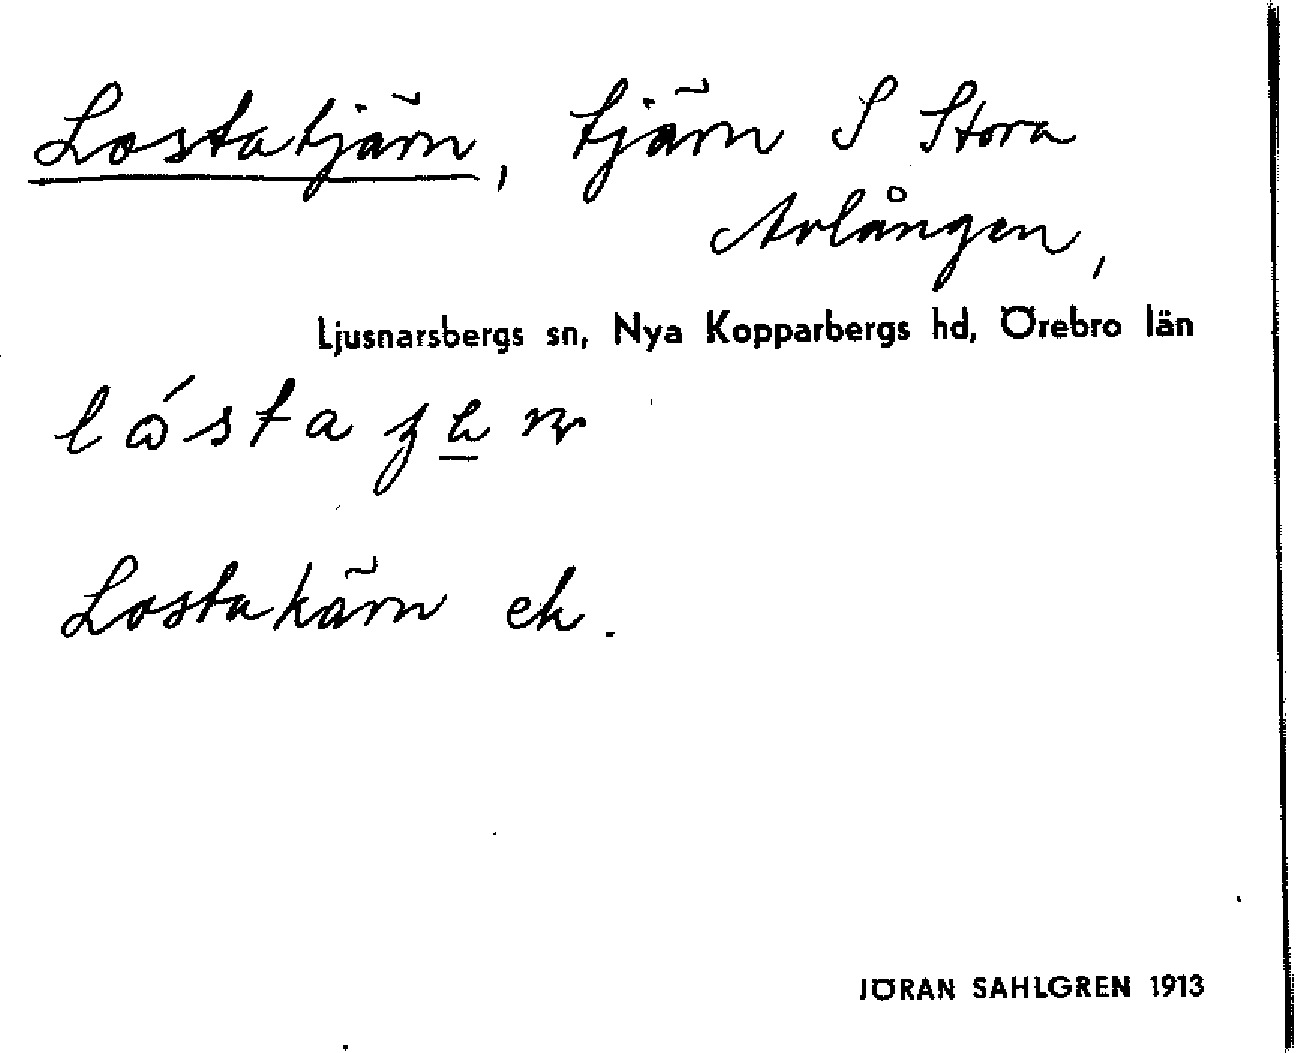 Lostatjärn, tjärn S Stora
Arlången,
Ljusnarsbergs sn, Nya Kopparbergs hd, Örebro län
Lostakärn ek.
JÖRAN SAHLGREN 1913